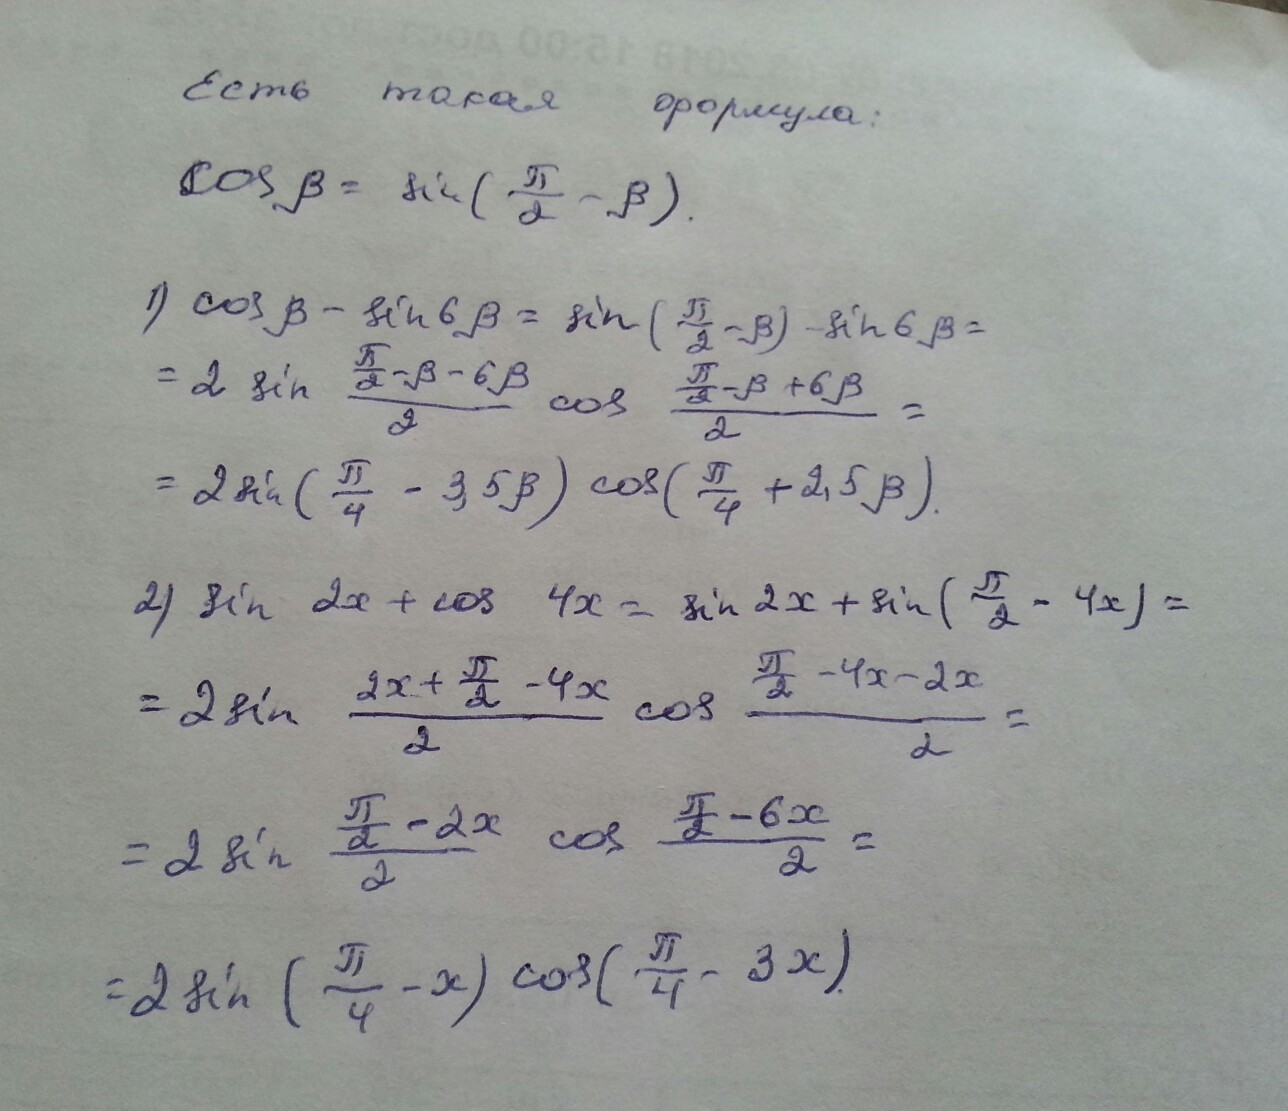 Есть такая формула:
cos β = sin( π/2 - β).
1) cos β - sin 6β = sin( π/2 - β) - sin 6β =
= 2 sin (π/2 - β - 6β)/2 cos (π/2 - β + 6β)/2 =
= 2 sin( π/4 - 3,5β) cos( π/4 + 2,5β).
2) sin 2x + cos 4x = sin 2x + sin( π/2 - 4x) =
= 2 sin (2x + π/2 - 4x)/2 cos (π/2 - 4x - 2x)/2 =
= 2 sin (π/2 - 2x)/2 cos (π/2 - 6x)/2 =
= 2 sin ( π/4 - x) cos( π/4 - 3x).